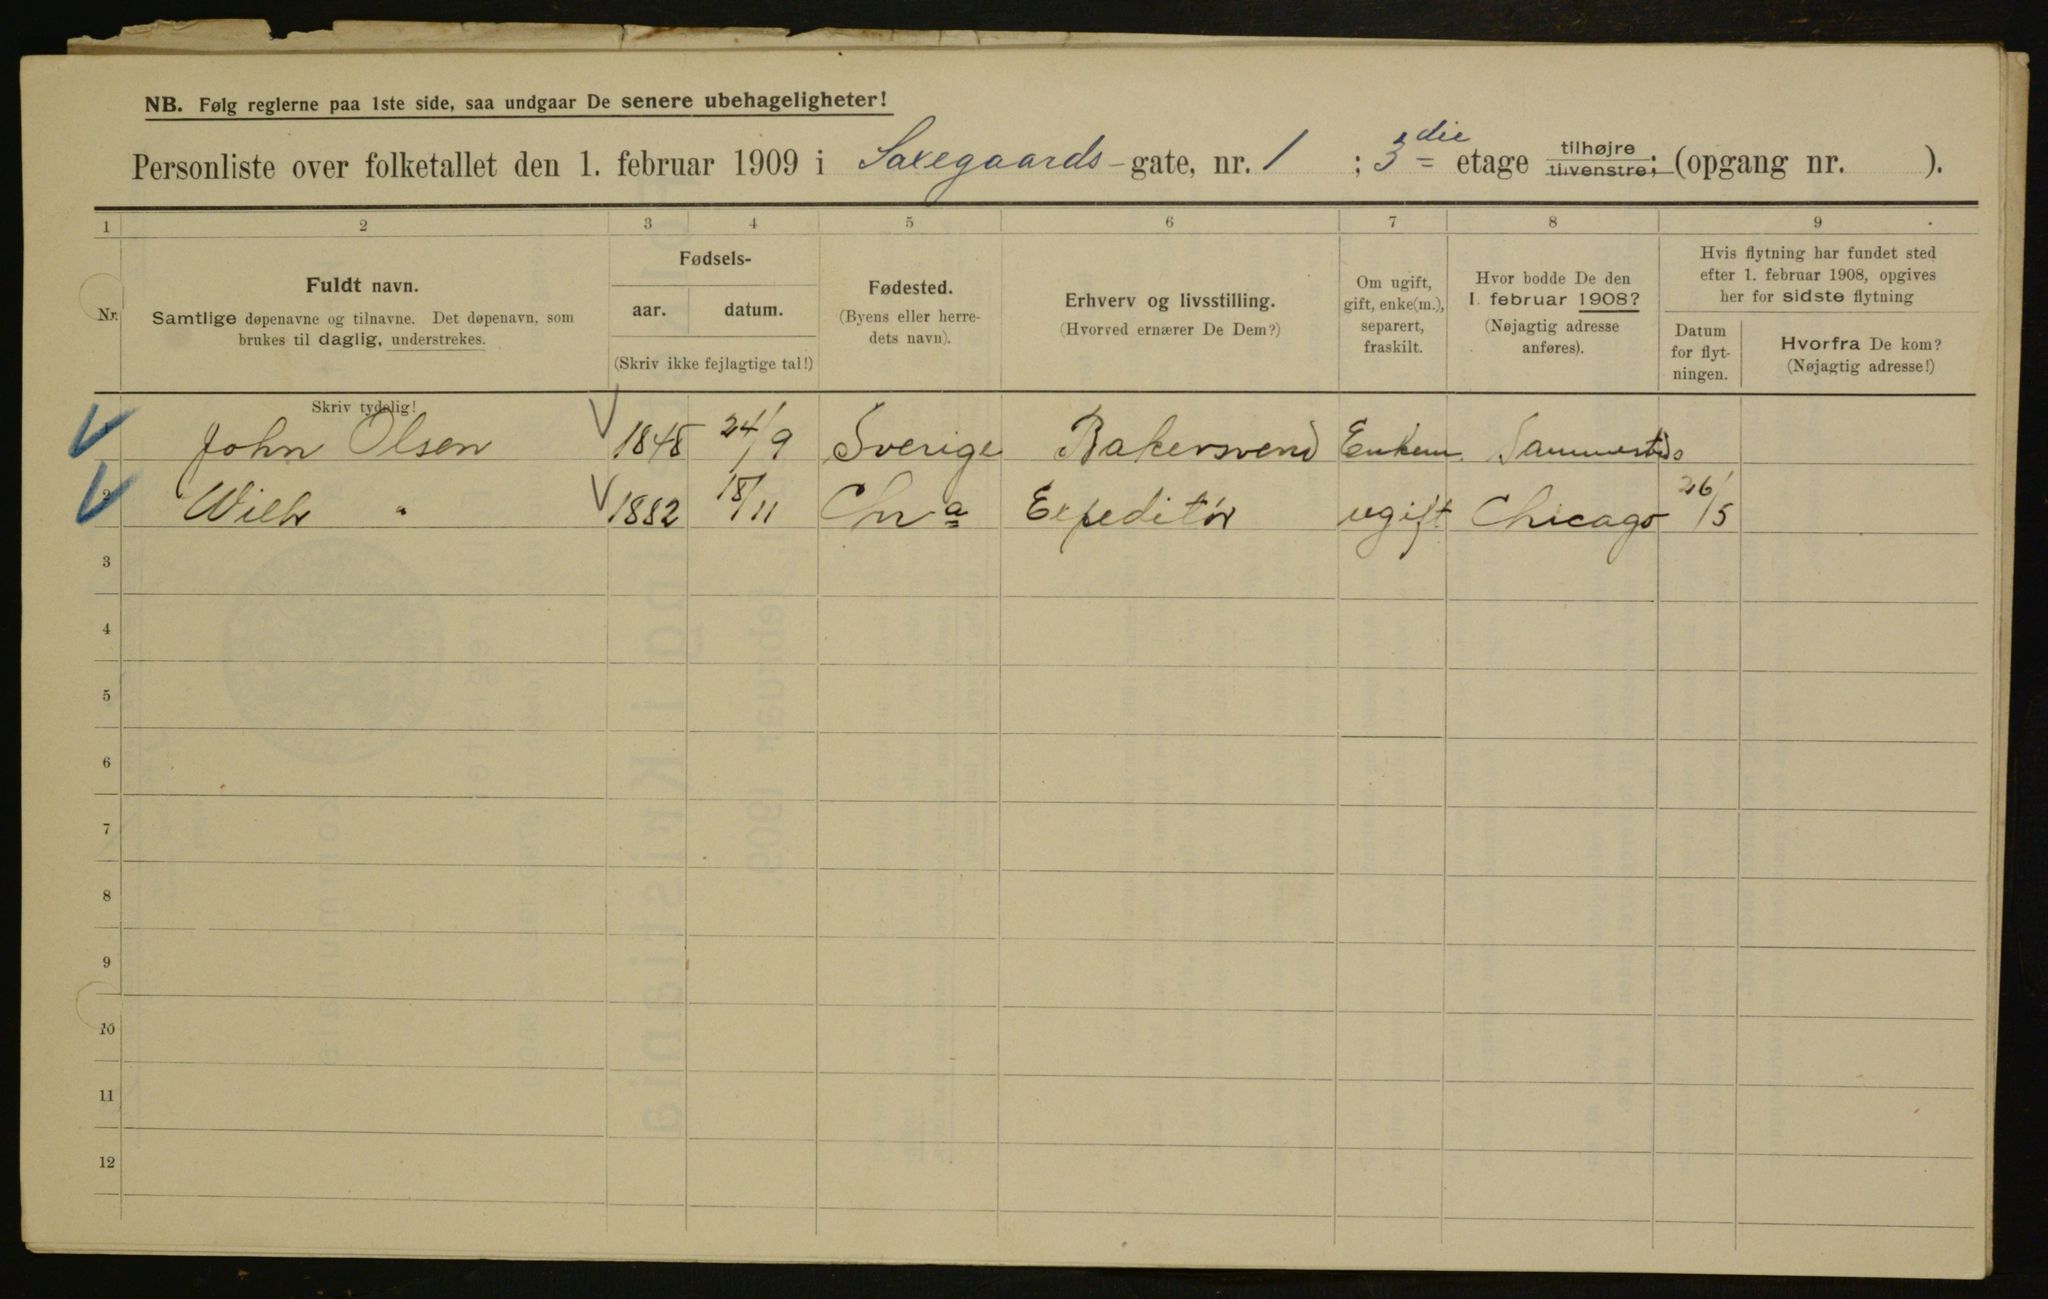 NB. Følg reglerne paa 1ste side, saa undgaar De senere ubehageligheter!
Personliste over folketallet den 1. februar 1909 i Saxegaards-gate, nr. 1 ; 3die etage tilhøjre tilvenstre; (opgang nr. ).
1 2 3 4 5 6 7 8 9
Nr.
Fuldt navn.
Samtlige døpenavne og tilnavne. Det døpenavn, som
brukes til daglig, understrekes.
Skriv tydelig!
Fødsels-
aar. datum.
(Skriv ikke fejlagtige tal!)
Fødested.
(Byens eller herre-
dets navn).
Erhverv og livsstilling.
(Hvorved ernærer De Dem?)
Om ugift,
gift, enke(m.),
separert,
fraskilt.
Hvor bodde De den
1. februar 1908?
(Nøjagtig adresse
anføres).
Hvis flytning har fundet sted
efter 1. februar 1908, opgives
her for sidste flytning
Datum
for flyt-
ningen.
Hvorfra De kom?
(Nøjagtig adresse!)
John Olsen 1848 24/9 Sverige Bakersvend Enkem. Sammesteds
2 Wilh " 1882 18/11 Chra Expeditør ugift Chicago 26/5
3
4
5
6
7
8
9
10
11
12